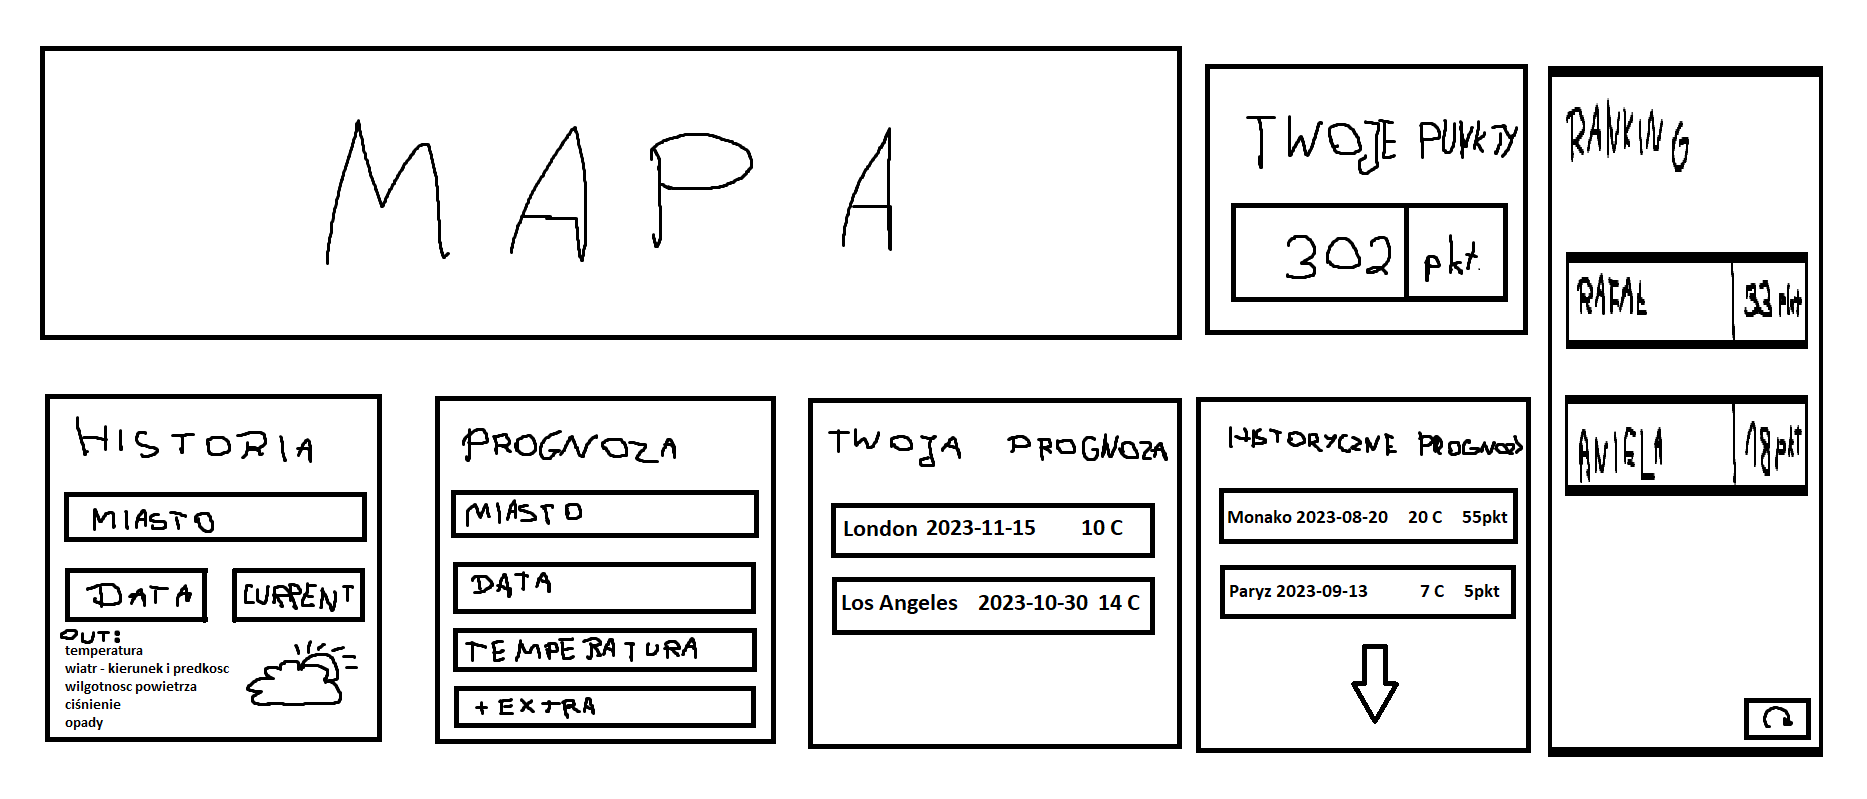 MAPA
TWOJE PUNKTY
302 pkt.
RANKING
RAFAŁ 33 pkt
ANIELA 18 pkt
HISTORIA
MIASTO
DATA CURRENT
OUT:
temperatura
wiatr - kierunek i predkosc
wilgotnosc powietrza
ciśnienie
opady
PROGNOZA
MIASTO
DATA
TEMPERATURA
+ EXTRA
TWOJA PROGNOZA
London 2023-11-15 10 C
Los Angeles 2023-10-30 14 C
HISTORYCZNE PROGNOZY
Monako 2023-08-20 20 C 55pkt
Paryz 2023-09-13 7 C 5pkt